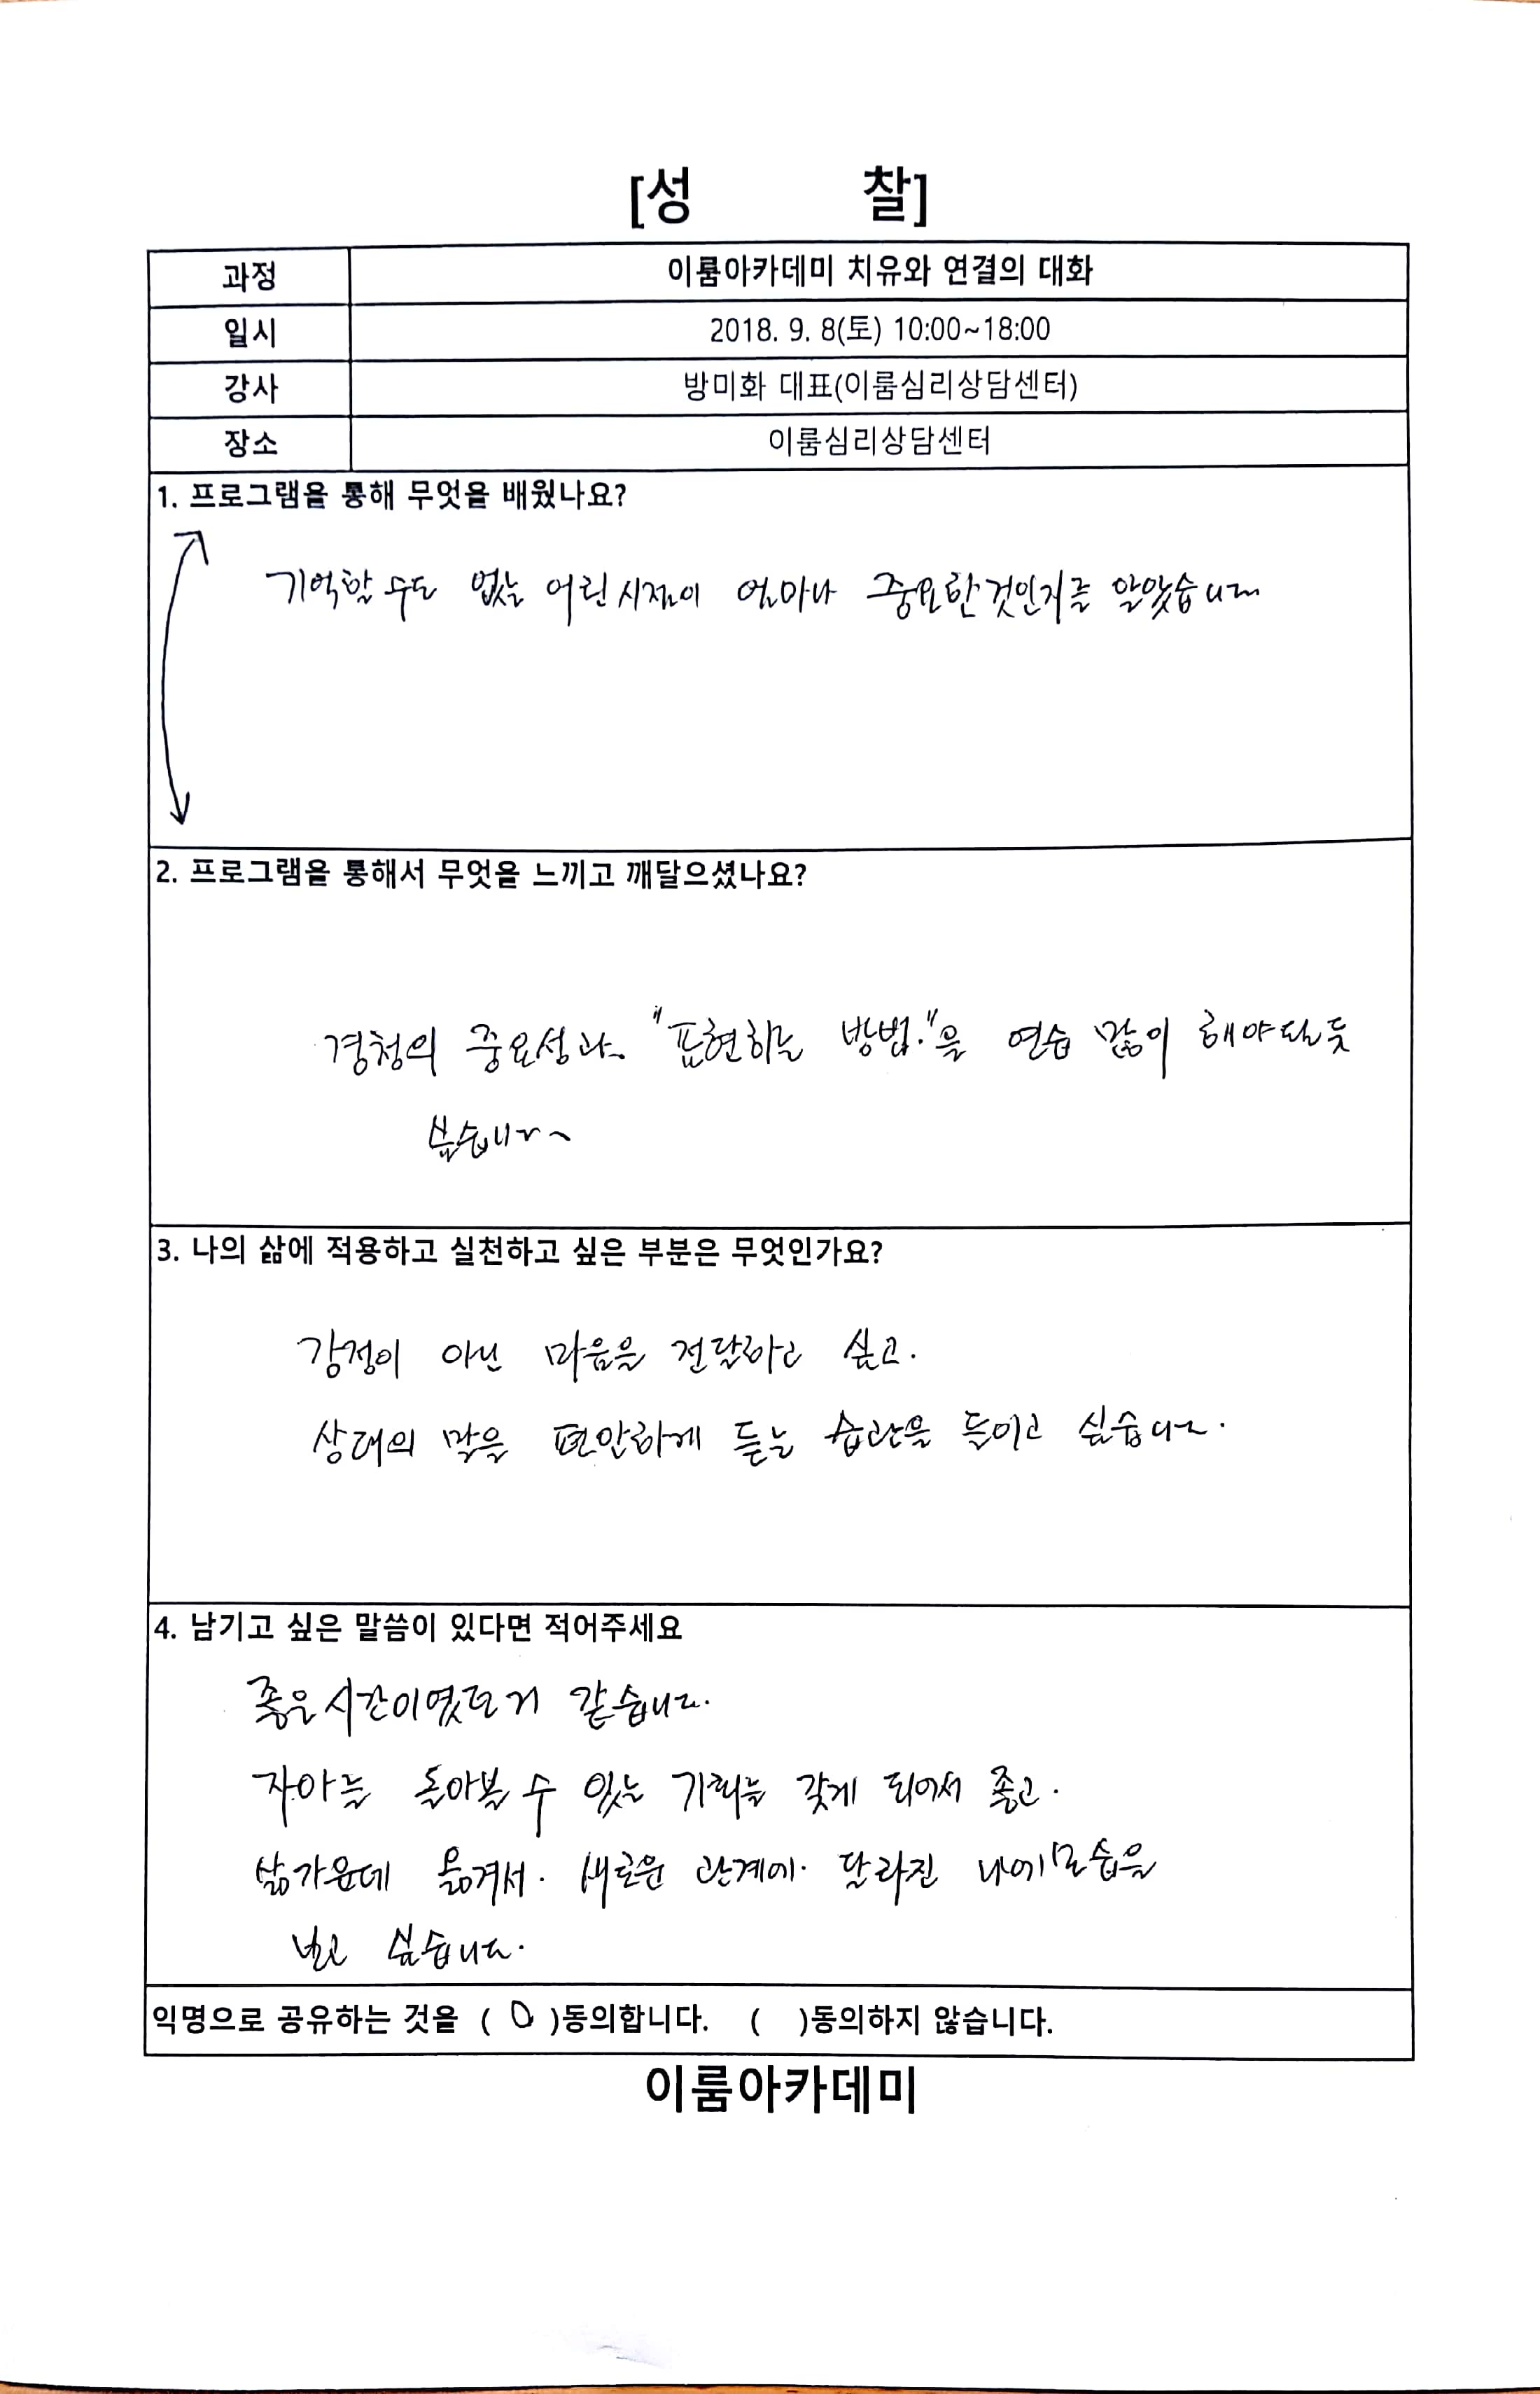 [성 찰]
과정 이룸아카데미 치유와 연결의 대화
일시 2018. 9. 8(토) 10:00~18:00
강사 방미화 대표(이룸심리상담센터)
장소 이룸심리상담센터
1. 프로그램을 통해 무엇을 배웠나요?
기억할 수도 없는 어린시절이 얼마나 중요한것인지를 알았습니다
2. 프로그램을 통해서 무엇을 느끼고 깨달으셨나요?
경청의 중요성과 "표현하는 방법."을 연습 많이 해야될듯
싶습니다~
3. 나의 삶에 적용하고 실천하고 싶은 부분은 무엇인가요?
감정이 아닌 마음을 전달하고 싶고.
상대의 말을 편안하게 듣는 습관을 들이고 싶습니다.
4. 남기고 싶은 말씀이 있다면 적어주세요
좋은시간이였던거 같습니다.
자아를 돌아볼 수 있는 기회를 갖게 되어서 좋고.
삶가운데 옮겨서. 새로운 관계에. 달라진 나에모습을
보고 싶습니다.
익명으로 공유하는 것을 ( O )동의합니다. ( )동의하지 않습니다.
이룸아카데미